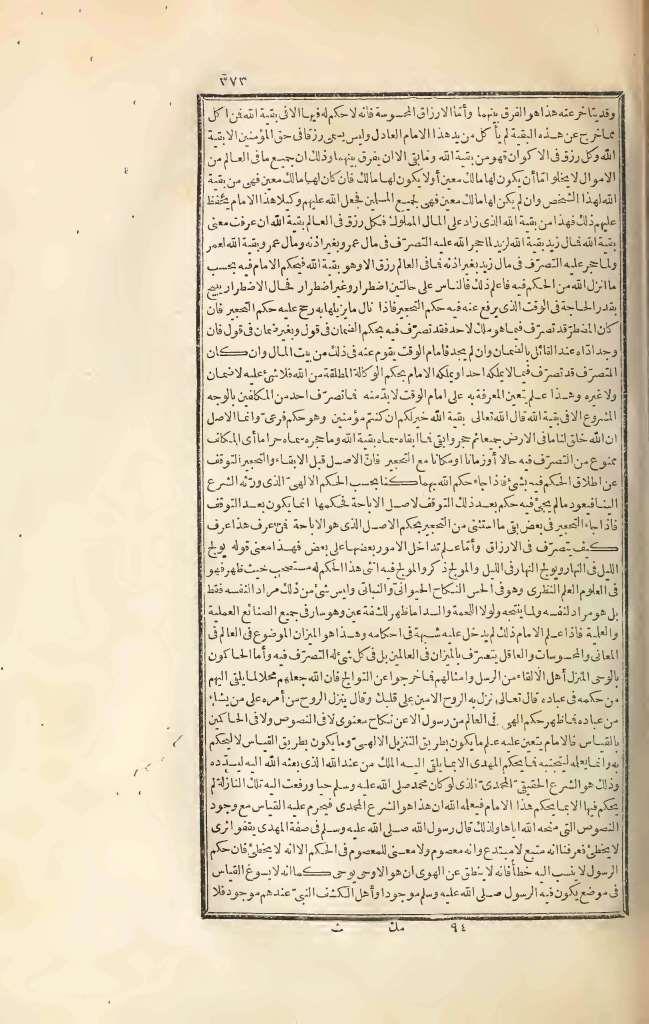 ٣٧٣
وقد يتأخر عنه هذا هو الفرق بينهما وأما الارزاق المحسوسة فانه لا حكم له فيها الا فى بقية الله فمن أكل
مما خرج عن هذه البقية لم يأكل من يد هذا الامام العادل وليس يسمى رزقا فى حق المؤمنين الا بقية
الله وكل رزق فى الاكوان فهو من بقية الله وما بقى الا ان يفرق بينهما وذلك ان جميع ما فى العالم من
الاموال لا يخلو اما أن يكون لها مالك معين أولا يكون لها مالك فان كان لها مالك معين فهى من بقية
الله لهذا الشخص وان لم يكن لها مالك معين فهى لجميع المسلمين فجعل الله عليهم وكيلا هذا الامام يحفظ
عليهم ذلك فهذا من بقية الله الذى زاد على المال المملوك فكل رزق فى العالم بقية الله ان عرفت معنى
بقية الله فمال زيد بقية الله لزيد لما حجر الله عليه التصرف فى مال عمرو بغير اذنه ومال عمرو بقية الله لعمرو
ولما حجر عليه التصرف فى مال زيد بغير اذنه فما فى العالم رزق الا وهو بقية الله فيحكم الامام فيه بحسب
ما انزل الله من الحكم فيه فاعلم ذلك فالناس على حالتين اضطرار وغير اضطرار فحال الاضطرار يبيح
بقدر الحاجة فى الوقت الذى يرفع عنه فيه حكم التحجير فاذا نال ما يزيلها به رجع عليه حكم التحجير فان
كان المضطر قد تصرف فيما هو ملك لاحد فقد تصرف فيه بحكم الضمان فى قول وبغير ضمان فى قول فان
وجد اداه عند القائل بالضمان وان لم يجد فامام الوقت يقوم عنه فى ذلك من بيت المال وان كان
المتصرف قد تصرف فيما لا يملكه احد او يملكه الامام بحكم الوكالة المطلقة من الله فلا شئ عليه لا ضمان
ولا غيره وهذا علم تعين المعرفة به على امام الوقت لا بد منه فما تصرف احد من المكلفين بالوجه
المشروع الا فى بقية الله قال الله تعالى بقية الله خير لكم ان كنتم مؤمنين وهو حكم فرعى وانما الاصل
ان الله خلق لنا ما فى الارض جميعا ثم حجر وابقى فما ابقاه سماه بقية الله وما حجره سماه حراما أى المكلف
ممنوع من التصرف فيه حالا أو زمانا او مكانا مع التحجير فان الاصل قبل الابقاء والتحجير التوقف
عن اطلاق الحكم فيه بشئ فاذا جاء حكم الله بهما كنا بحسب الحكم الالهى الذى ورد به الشرع
الينا فيعود مالم يجئ فيه حكم بعد ذلك التوقف لاصل الاباحة فحكمها انما يكون بعد التوقف
فاذا جاء التحجير فى بعض بقى ما استثنى من التحجير بحكم الاصل الذى هو الاباحة فمن عرف هذا عرف
كيف يتصرف فى الارزاق وأما علم تداخل الامور بعضها على بعض فهذا معنى قوله يولج
الليل فى النهار ويولج النهار فى الليل والمولج ذكر والمولج فيه انثى هذا الحكم له مستصحب حيث ظهر فهو
فى العلوم العلم النظرى وهو فى الحس النكاح الحيوانى والنباتى وليس شئ من ذلك مراد النفسه فقط
بل هو مراد لنفسه ولما ينتجه ولولا اللحمة والسدا ما ظهر للشقة عين وهو سار فى جميع الصنائع العملية
والعلمية فاذا علم الامام ذلك لم يدخل عليه شبهة فى احكامه وهذا هو الميزان الموضوع فى العالم فى
المعانى والمحسوسات والعاقل يتصرف بالميزان فى العالمين بل فى كل شئ له التصرف فيه وأما الحاكمون
بالوحى المنزل أهل الالقاء من الرسل وامثالهم فما خرجوا عن التوالج فان الله جعلهم محلا لما يلقى اليهم
من حكمه فى عباده قال تعالى نزل به الروح الامين على قلبك وقال ينزل الروح من أمره على من يشاء
من عباده فما ظهر حكم الهى فى العالم من رسول الا عن نكاح معنوى لا فى النصوص ولا فى الحاكمين
بالقياس فالامام يتعين عليه علم ما يكون بطريق التنزيل الالهى وما يكون بطريق القياس لا ليحكم
به وانما يعلمه ليتجنبه فما يحكم المهدى الا بما يلقى اليه الملك من عند الله الذى بعثه الله اليه ليسدده
وذلك هو الشرع الحقيقى المحمدى الذى لو كان محمد صلى الله عليه وسلم حيا ورفعت اليه تلك النازلة لم
يحكم فيها الا بما يحكم هذا الامام فيعلمه الله ان هذا هو الشرع المحمدى فيحرم عليه القياس مع وجود
النصوص التى منحه الله اياها ولذلك قال رسول الله صلى الله عليه وسلم فى صفة المهدى يقفو اثرى
لا يخطئ فعرفنا انه متبع لا مبتدع وانه معصوم ولا معنى للمعصوم فى الحكم الا انه لا يخطئ فان حكم
الرسول لا ينسب اليه خطأ فانه لا ينطق عن الهوى ان هو الا وحى يوحى كما انه لا يسوغ القياس
فى موضع يكون فيه الرسول صلى الله عليه وسلم موجودا وأهل الكشف النبى عندهم موجود فلا
٩٤ مك ث